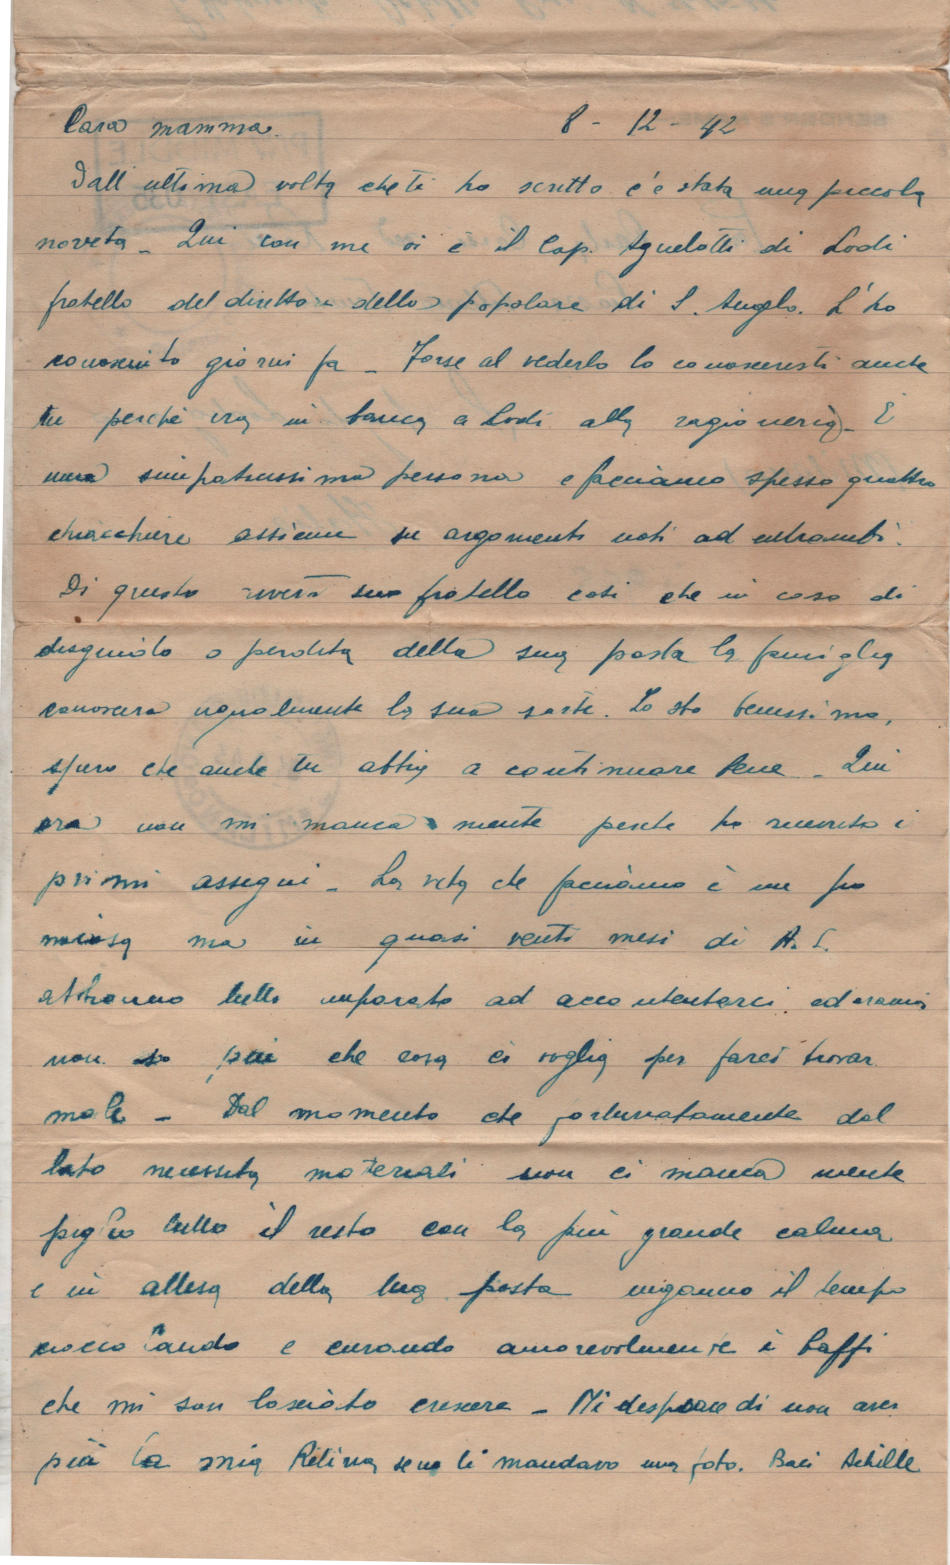 Cara mamma. 8 - 12 - 42
Dall'ultima volta che ti ho scritto c'è stata una piccola
novità - Qui con me vi è il Cap. Agnelotti di Lodi
fratello del direttore della popolare di S. Angelo. L'ho
conosciuto giorni fa - Forse al vederlo lo conosceresti anche
tu perché era in banca a Lodi alla ragioneria - È
una simpaticissima persona e facciamo spesso quattro
chiacchiere assieme su argomenti noti ad entrambi.
Di questo avverti suo fratello così che in caso di
disguido o perdita della sua posta la famiglia
conoscerà ugualmente la sua sorte. Io sto benissimo,
spero che anche tu abbia a continuare bene - Qui
ora non mi manca niente perché ho ricevuto i
primi assegni - La vita che facciamo è un po
noiosa ma in quasi venti mesi di A. S.
abbiamo tutti imparato ad accontentarci ed oramai
non so più che cosa ci voglia per farci trovar
male - Dal momento che fortunatamente dal
lato necessità materiali non ci manca niente
piglio tutto il resto con la più grande calma
e in attesa della tua posta inganno il tempo
e curando amorevolmente i baffi
che mi son lasciato crescere - Mi dispiace di non aver
più la mia Retina se no ti mandavo una foto. Baci Achille